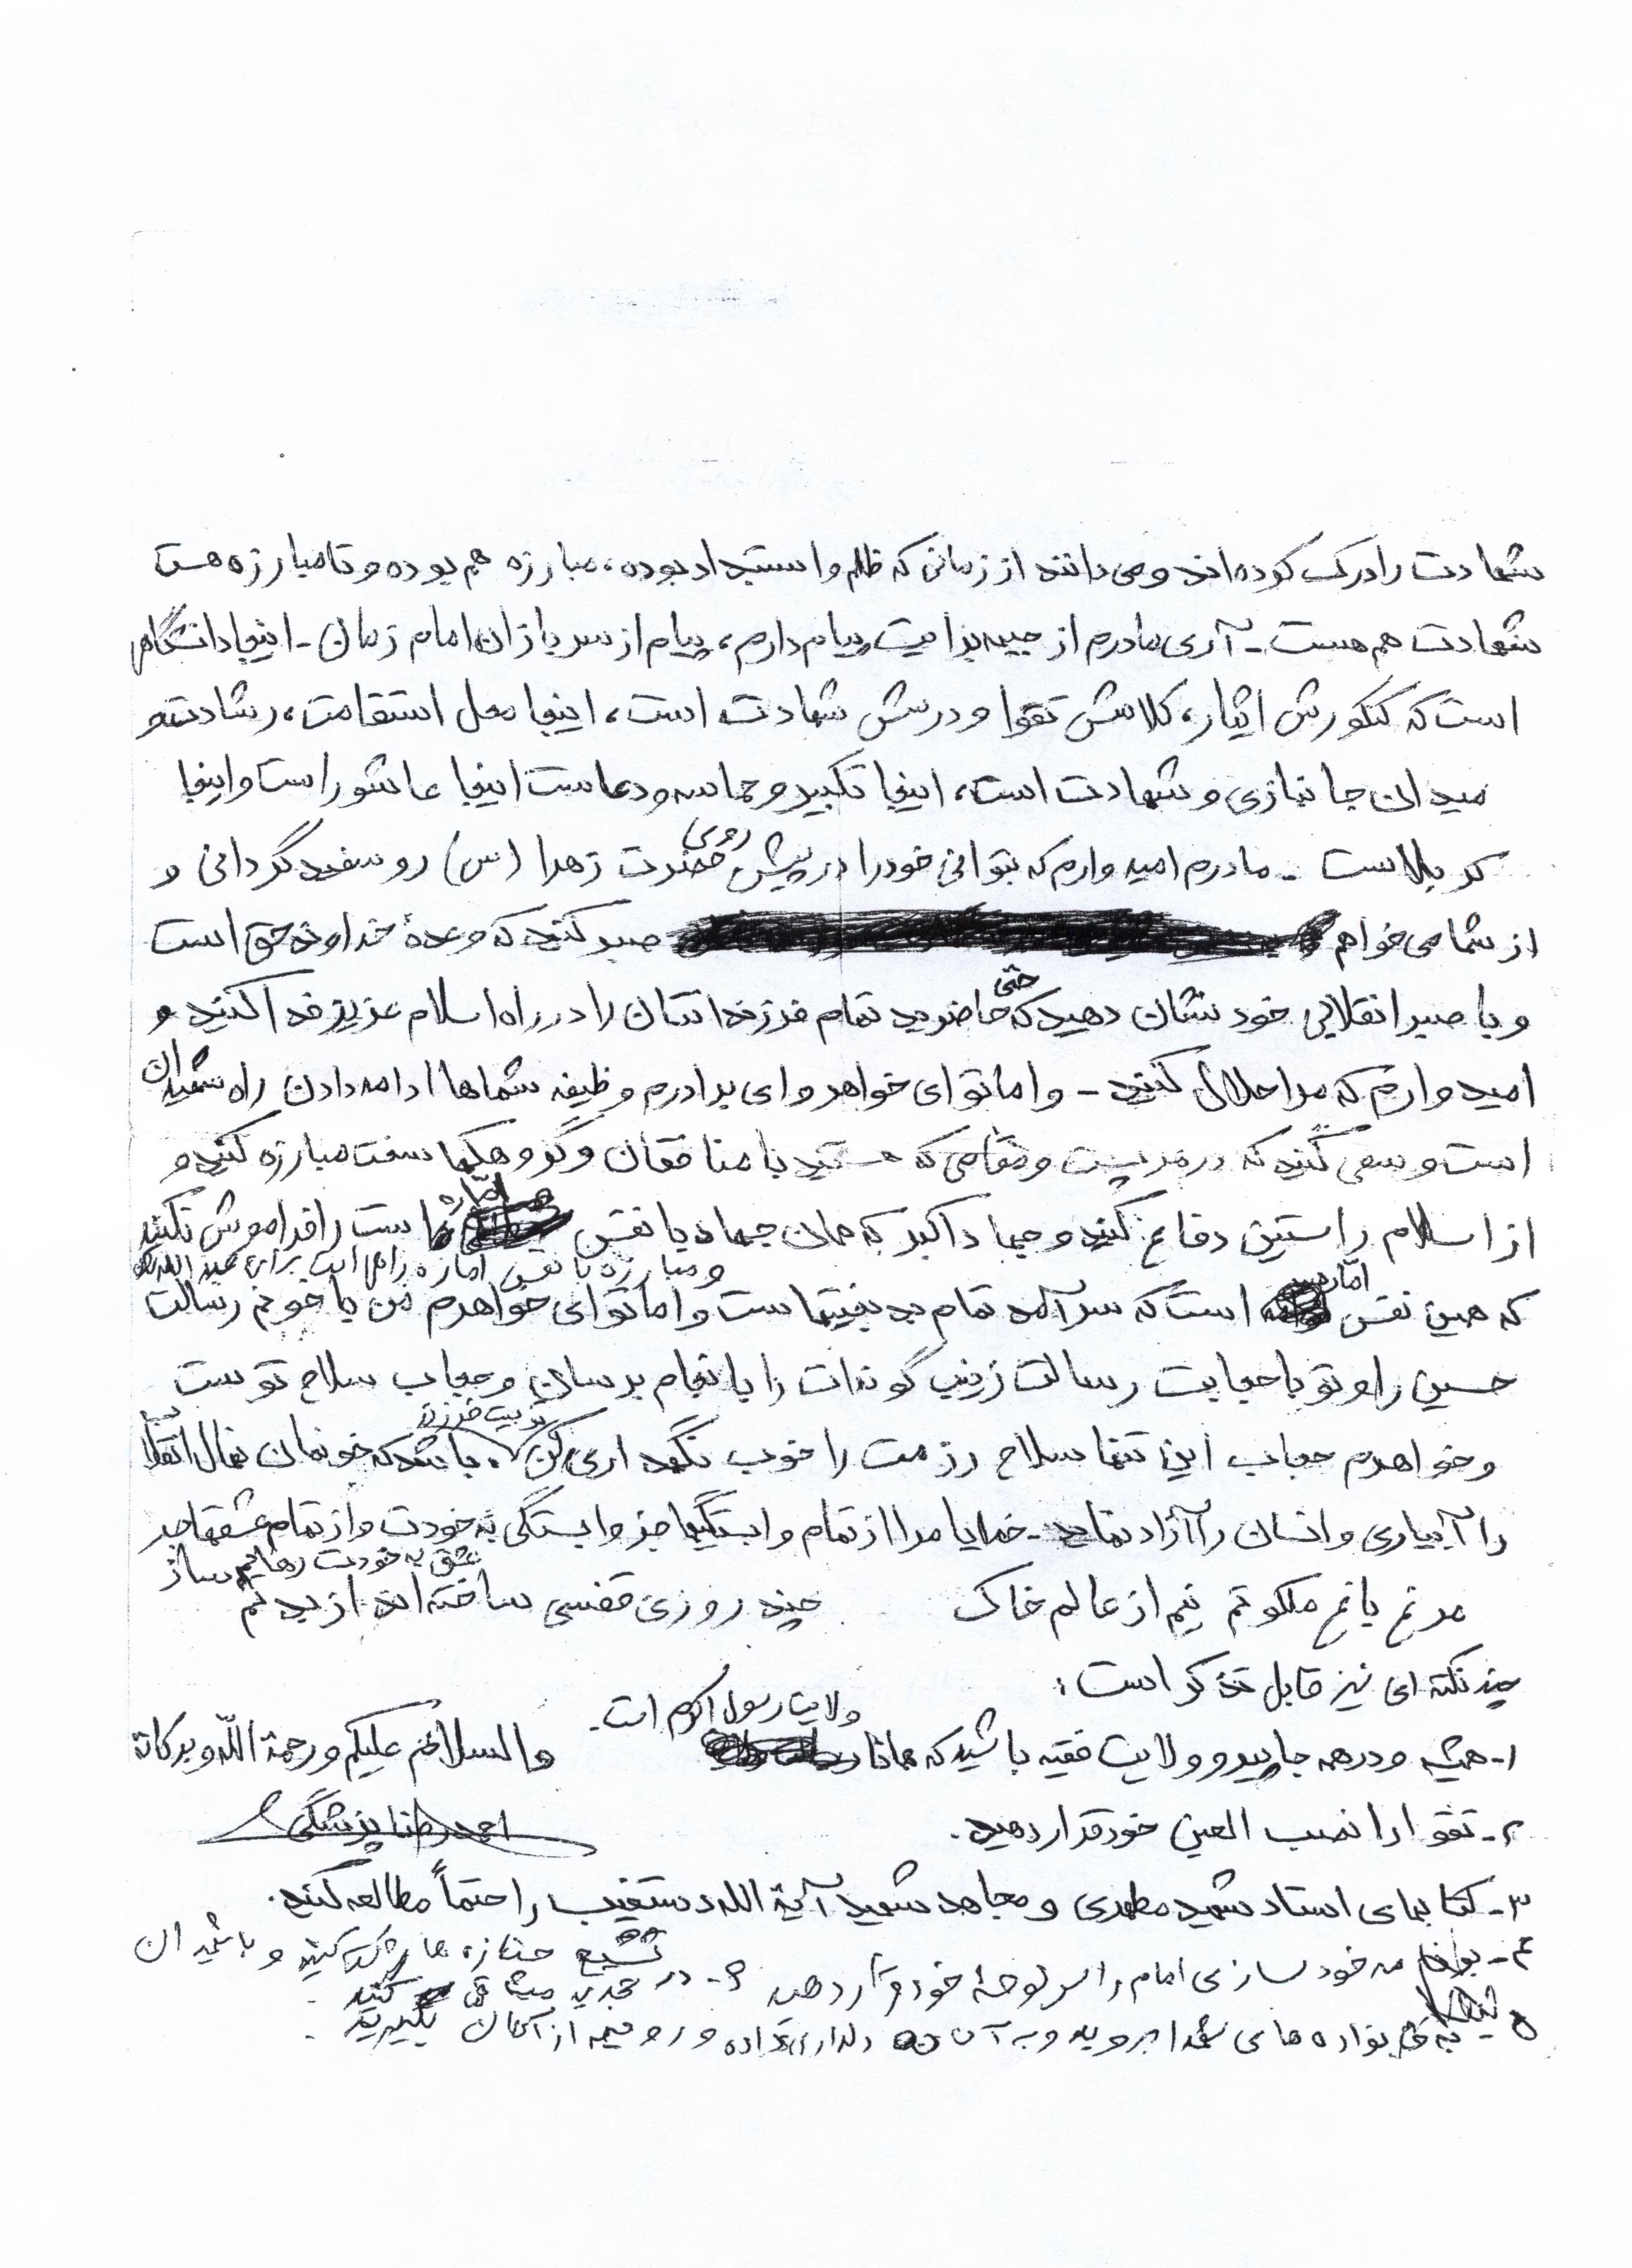 شهادت را درک کرده‌اند و می‌دانند از زمانی که ظلم و استبداد بوده، مبارزه هم بوده و تا مبارزه هست
شهادت هم هست - آری مادرم از جبهه برایت پیام دارم، پیام از سربازان امام زمان - اینجا دانشگاهی
است که کنکورش ایثار، کلاسش تقوا و درسش شهادت است، اینجا محل استقامت، رشادت و
میدان جانبازی و شهادت است، اینجا تکبیر و حماسه و دعاست اینجا عاشوراست و اینجا
کربلاست - مادرم امیدوارم که بتوانی خود را در پیش روی حضرت زهرا (س) روسفید گردانی و
از شما می‌خواهم صبر کنید که وعدهٔ خداوند حق است
و با صبر انقلابی خود نشان دهید که حتی حاضرید تمام فرزندانتان را در راه اسلام عزیز فدا کنید و
امیدوارم که مرا حلال کنید - و اما تو ای خواهر و ای برادرم وظیفه شماها ادامه دادن راه شهیدان
است و سعی کنید که در هر پست و مقامی که هستید با منافقان و گروهکها سخت مبارزه کنید و
از اسلام راستین دفاع کنید و جهاد اکبر که همان جهاد با نفس اماره است را فراموش نکنید
و مبارزه با نفس اماره راهی است برای
که همین نفس اماره است که سرآمد تمام بدبختیهاست و اما تو ای خواهرم من با خونم رسالت
حسین را و تو با حجابت رسالت زینب گونه‌ات را به انجام برسان و حجاب سلاح توست
و خواهرم حجاب این تنها سلاح رزمت را خوب نگهداری کن تربیت فرزند. باشد که خونمان نهال انقلاب
را آبیاری و انسان را آزاد نماید - خدایا مرا از تمام وابستگیها جز وابستگی به خودت و از تمام عشقها جز
عشق به خودت رهایم ساز
مرغ باغ ملکوتم نیم از عالم خاک چند روزی قفسی ساخته‌اند از بدنم
چند نکته‌ای نیز قابل تذکر است:
۱- همیشه و در همه جا پیرو ولایت فقیه باشید که همانا ولایت رسول اکرم است. والسلام علیکم و رحمة الله و برکاته
۲- تقوا را نصب العین خود قرار دهید. احمدرضا پزشکی
۳- کتابهای استاد شهید مطهری و مجاهد شهید آیة الله دستغیب را حتماً مطالعه کنید.
۴- برنامه خودسازی امام را سرلوحهٔ خود قرار دهید ۶- در تشییع جنازه‌ها شرکت کنید و با شهیدان
تجدید میثاق کنید.
۵- به خانواده‌های شهدا بروید و به آنان دلداری داده و روحیه از آنان بگیرید.